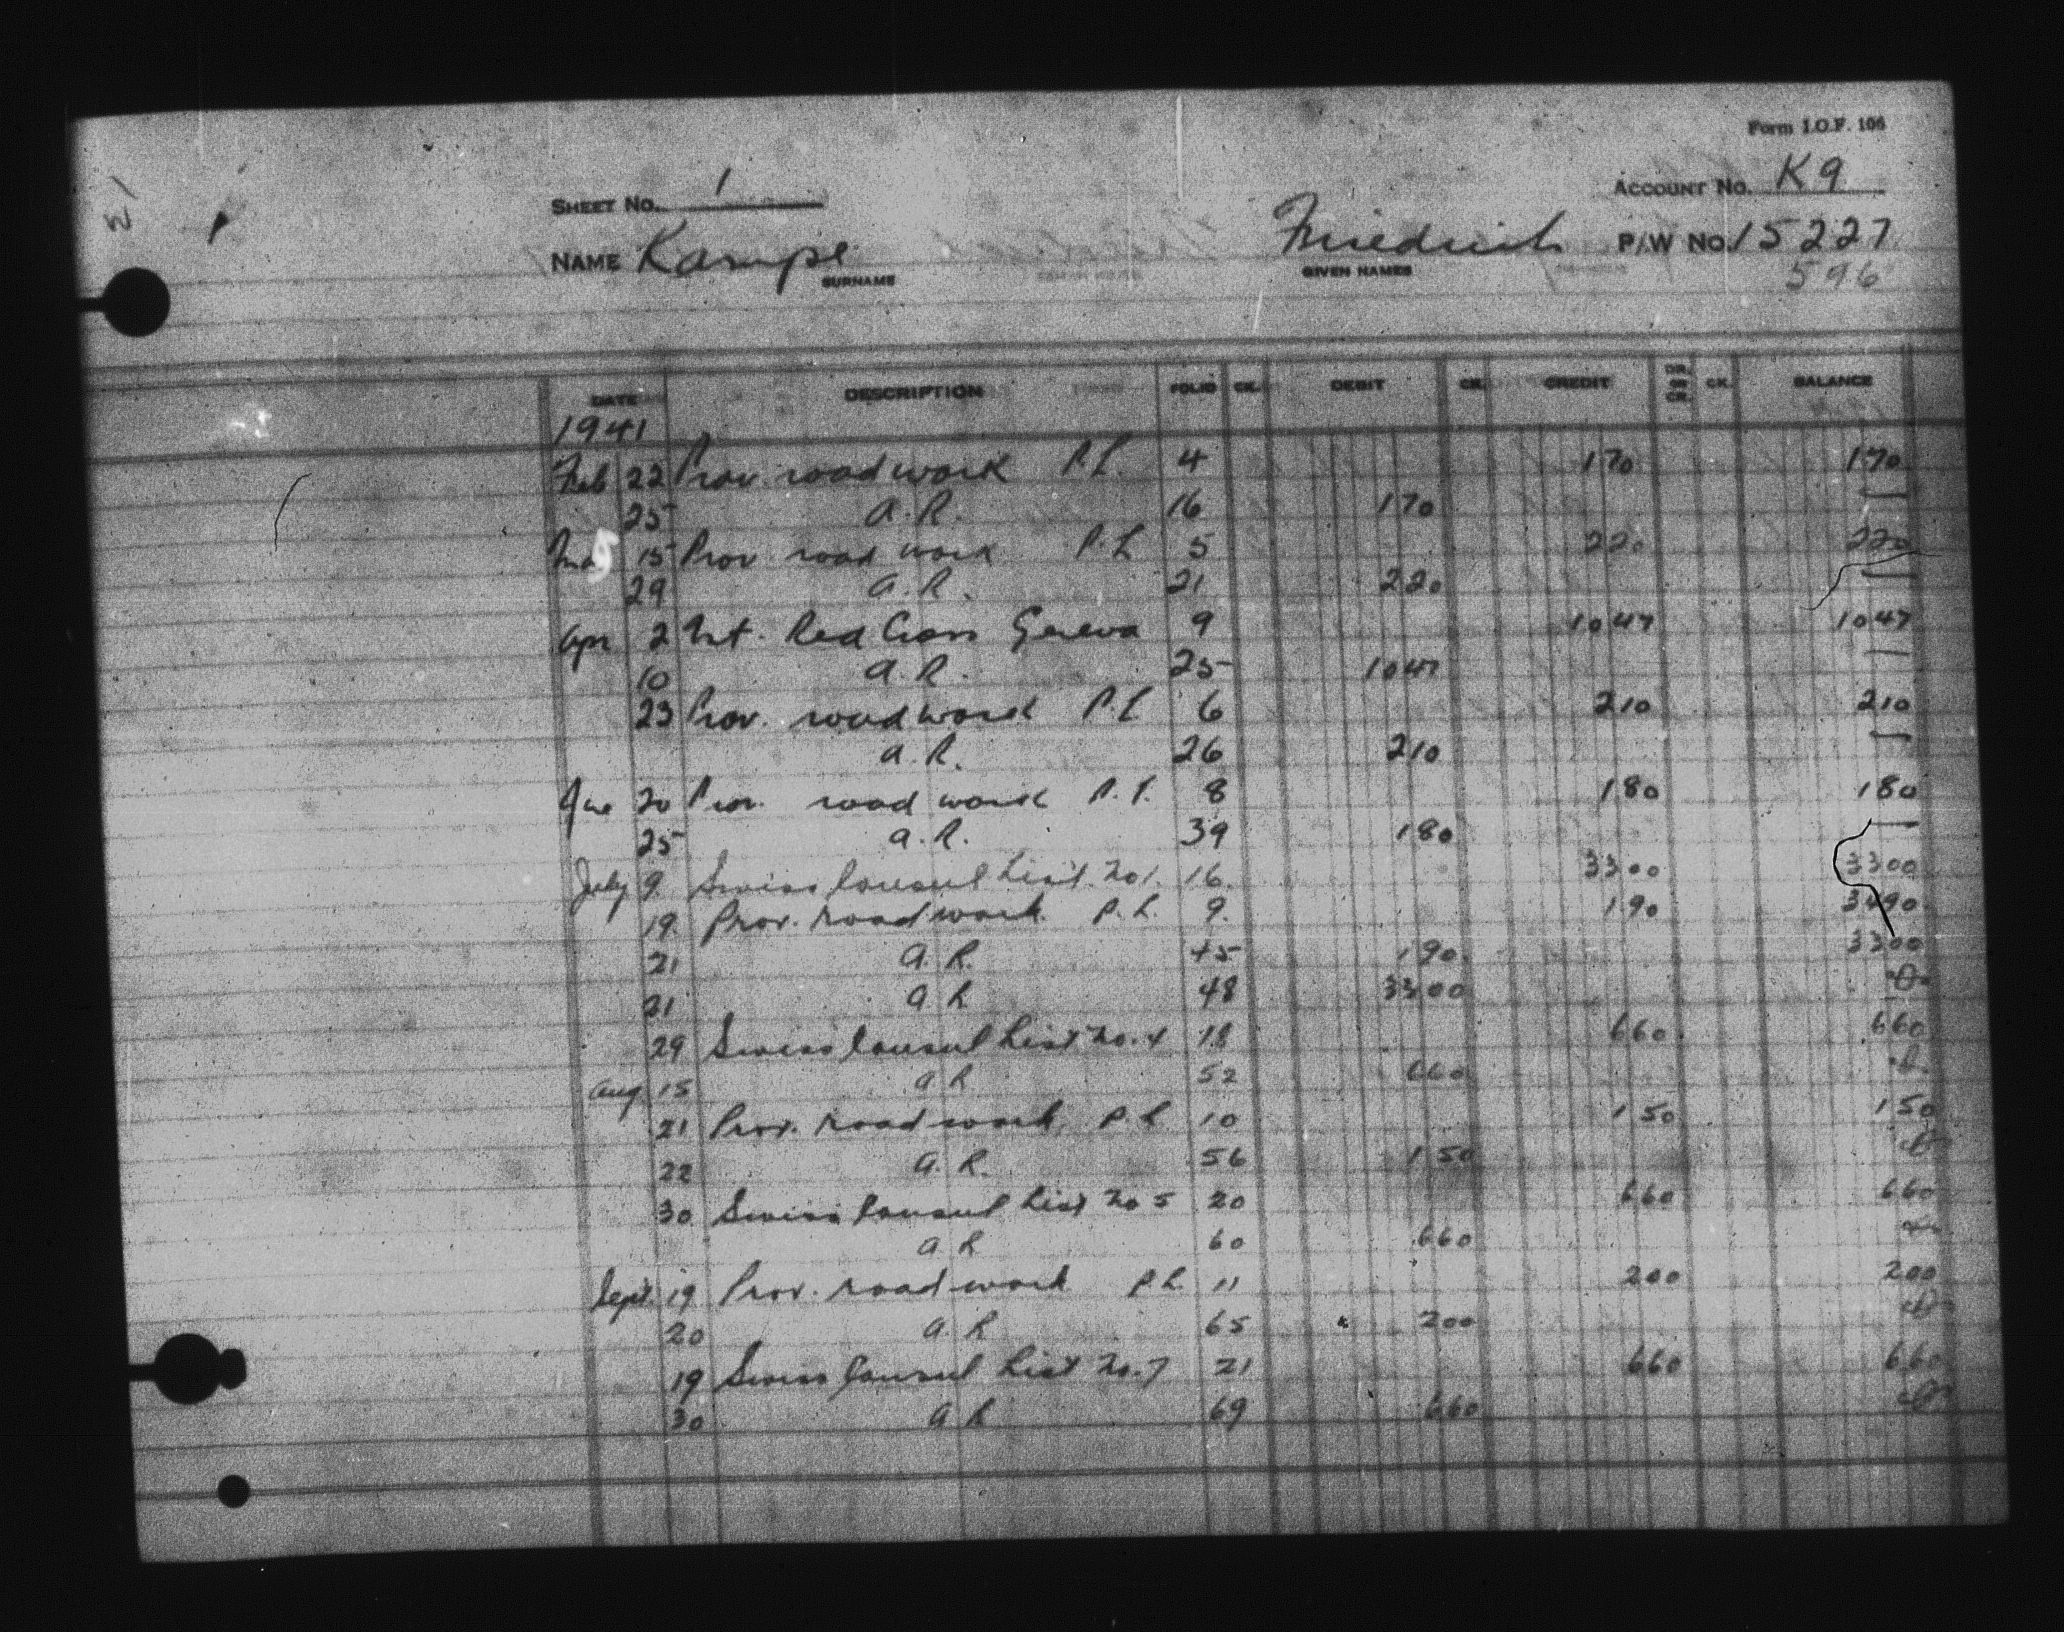 Form I.O.F. 106
21
SHEET No. 1 ACCOUNT No. K9
NAME Kampe Friedrich P/W No. 15227
SURNAME GIVEN NAMES 596
DATE DESCRIPTION FOLIO CK. DEBIT CK. CREDIT DR. OR CR. CK. BALANCE
1941
Feb 22 Prov. road work P.L. 4 170 170
25 A.R. 16 170 —
15 Prov road work P.L 5 220 220
29 A.R. 21 220 —
Apr 2 Int. Red Cross Geneva 9 1047 1047
10 A.R. 25 1047 —
23 Prov. road work P.L 6 210 210
A.R. 26 210 —
June 20 Prov. road work P.L. 8 180 180
25 A.R. 39 180 —
July 9 Swiss Consul List No 1. 16 3300 3300
19 Prov. road work P.L. 9. 190 3490
21 A.R. 45 190 3300
21 A R 48 3300
29 Swiss Consul List No. 4 18 660 660
Aug 15 A R 52 660
21 Prov. road work P.L 10 150 150
22 A.R. 56 150
30 Swiss Consul List No 5 20 660 660
A R 60 660
Sept. 19 Prov. road work P.L 11 200 200
20 A R 65 200
19 Swiss Consul List No. 7 21 660 660
30 A R 69 660